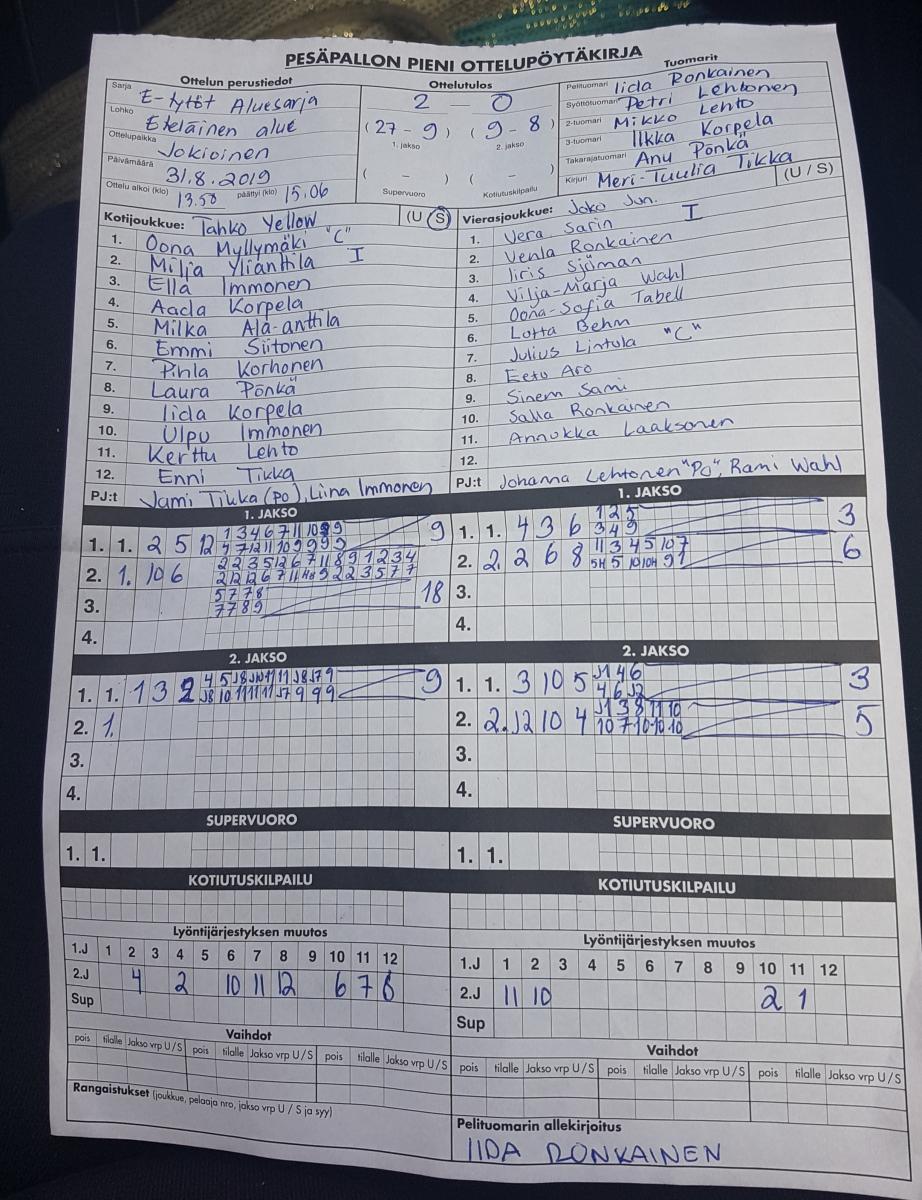 PESÄPALLON PIENI OTTELUPÖYTÄKIRJA
Ottelun perustiedot
Sarja E-tytöt Aluesarja
Lohko Eteläinen alue
Ottelupaikka Jokioinen
Päivämäärä 31.8.2019
Ottelu alkoi (klo) 13.50 päättyi (klo) 15.06
Ottelutulos
2 – 0
(27 – 9) (9 – 8)
1. jakso 2. jakso
( – ) ( – )
Supervuoro Kotiutuskilpailu
Tuomarit
Pelituomari Iida Ronkainen
Syöttötuomari Petri Lehtonen
2-tuomari Mikko Lehto
3-tuomari Ilkka Korpela
Takarajatuomari Anu Pönkä
Kirjuri Meri-Tuulia Tikka
Kotijoukkue: Tahko Yellow (U S)
1. Oona Myllymäki "C"
2. Milja Ylianttila I
3. Ella Immonen
4. Aada Korpela
5. Milka Ala-anttila
6. Emmi Siitonen
7. Pihla Korhonen
8. Laura Pönkä
9. Iida Korpela
10. Ulpu Immonen
11. Kerttu Lehto
12. Enni Tikka
PJ:t Jami Tikka (PO), Liina Immonen
Vierasjoukkue: Joko Jun. (U / S)
1. Vera Sarin I
2. Venla Ronkainen
3. Iiris Sjöman
4. Vilja-Marja Wahl
5. Oona-Sofia Tabell
6. Lotta Behm
7. Julius Lintula "C"
8. Eetu Aro
9. Sinem Sami
10. Salla Ronkainen
11. Annukka Laaksonen
12.
PJ:t Johanna Lehtonen "PO", Rami Wahl
1. JAKSO
1. 1. 2 5 12 9
2. 1. 10 6
3. 18
4.
1. JAKSO
1. 1. 4 3 6 1 2 5 3
3 4 9
2. 2. 2 6 8 6
3.
4.
2. JAKSO
1. 1. 1 3 2 9
2. 1.
3.
4.
2. JAKSO
1. 1. 3 10 5 J1 4 6 3
4 6 J2
2. 2. J2 10 4 J1 3 8 11 10 5
10 7 10 10 10
3.
4.
SUPERVUORO
1. 1.
SUPERVUORO
1. 1.
KOTIUTUSKILPAILU
KOTIUTUSKILPAILU
Lyöntijärjestyksen muutos
1.J 1 2 3 4 5 6 7 8 9 10 11 12
2.J 4 2 10 11 12 6 7 8
Sup
Lyöntijärjestyksen muutos
1.J 1 2 3 4 5 6 7 8 9 10 11 12
2.J 11 10 2 1
Sup
Vaihdot
pois tilalle Jakso vrp U/S pois tilalle Jakso vrp U/S pois tilalle Jakso vrp U/S
Vaihdot
pois tilalle Jakso vrp U/S pois tilalle Jakso vrp U/S pois tilalle Jakso vrp U/S
Rangaistukset (joukkue, pelaaja nro, jakso vrp U / S ja syy)
Pelituomarin allekirjoitus
IIDA RONKAINEN